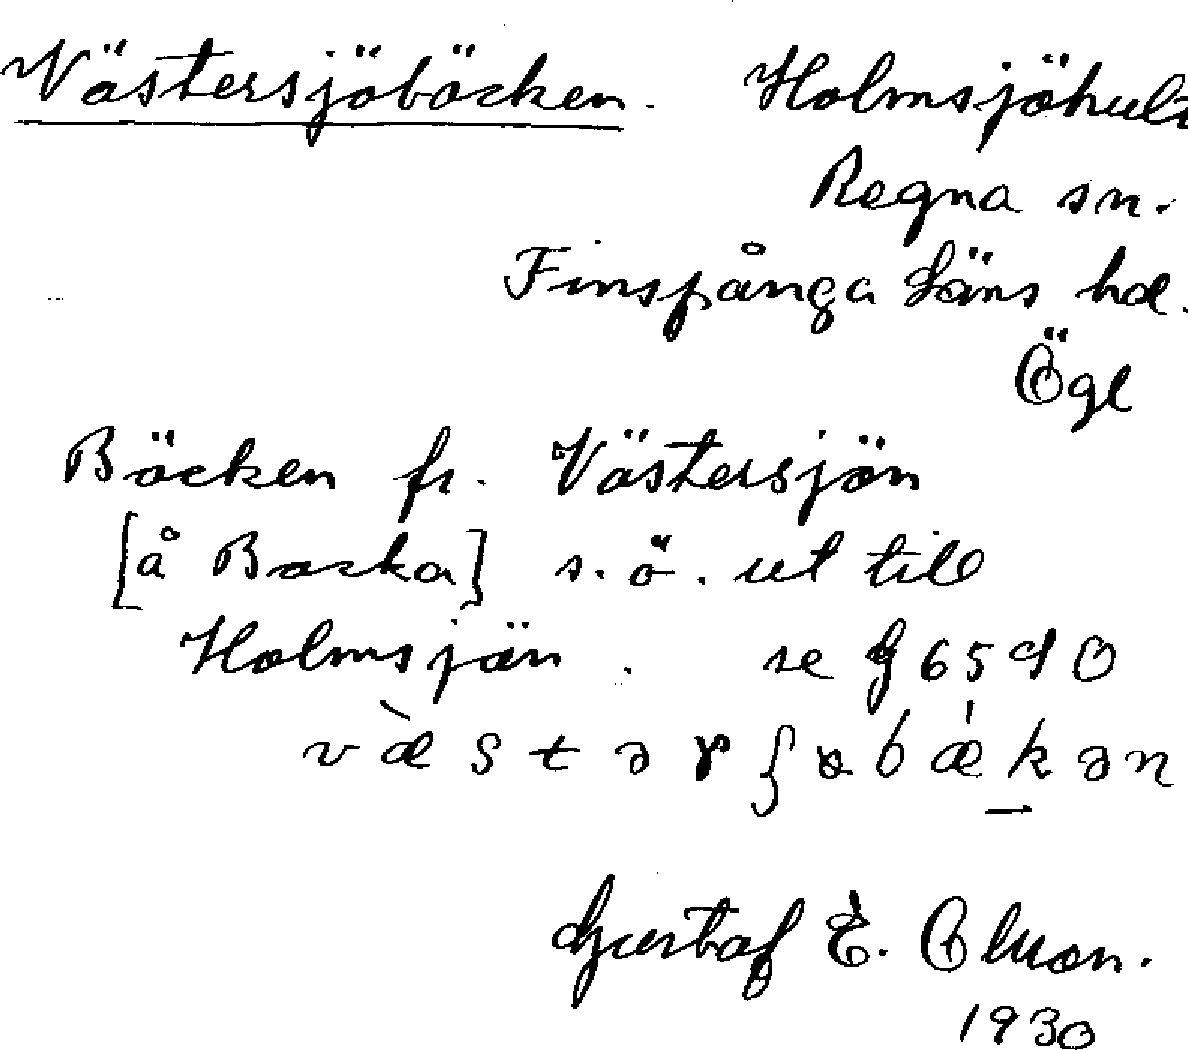 Västersjöbäcken. Holmsjöhult
Regna sn.
Finspånga läns hd.
Ögl
Bäcken fr. Västersjön
[å Backa] s.ö. ut till
Holmsjön. se 6590
1930